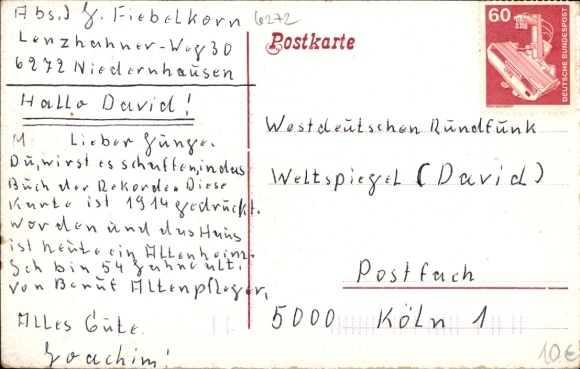 Abs.) G. Fiebelkorn
6272
Lenzhahner-Weg 30
6272 Niedernhausen
Hallo David!
M Lieber Junge.
Du, wirst es schaffen, in das
Buch der Rekorde. Diese
Karte ist 1914 gedruckt.
worden und das Haus
ist heute ein Altenheim.
Ich bin 54 Jahre alt.
von Beruf Altenpfleger,
Alles Gute.
Joachim!
Postkarte
60
DEUTSCHE BUNDESPOST
Westdeutschen Rundfunk
Weltspiegel (David)
Postfach
5000 Köln 1
10€